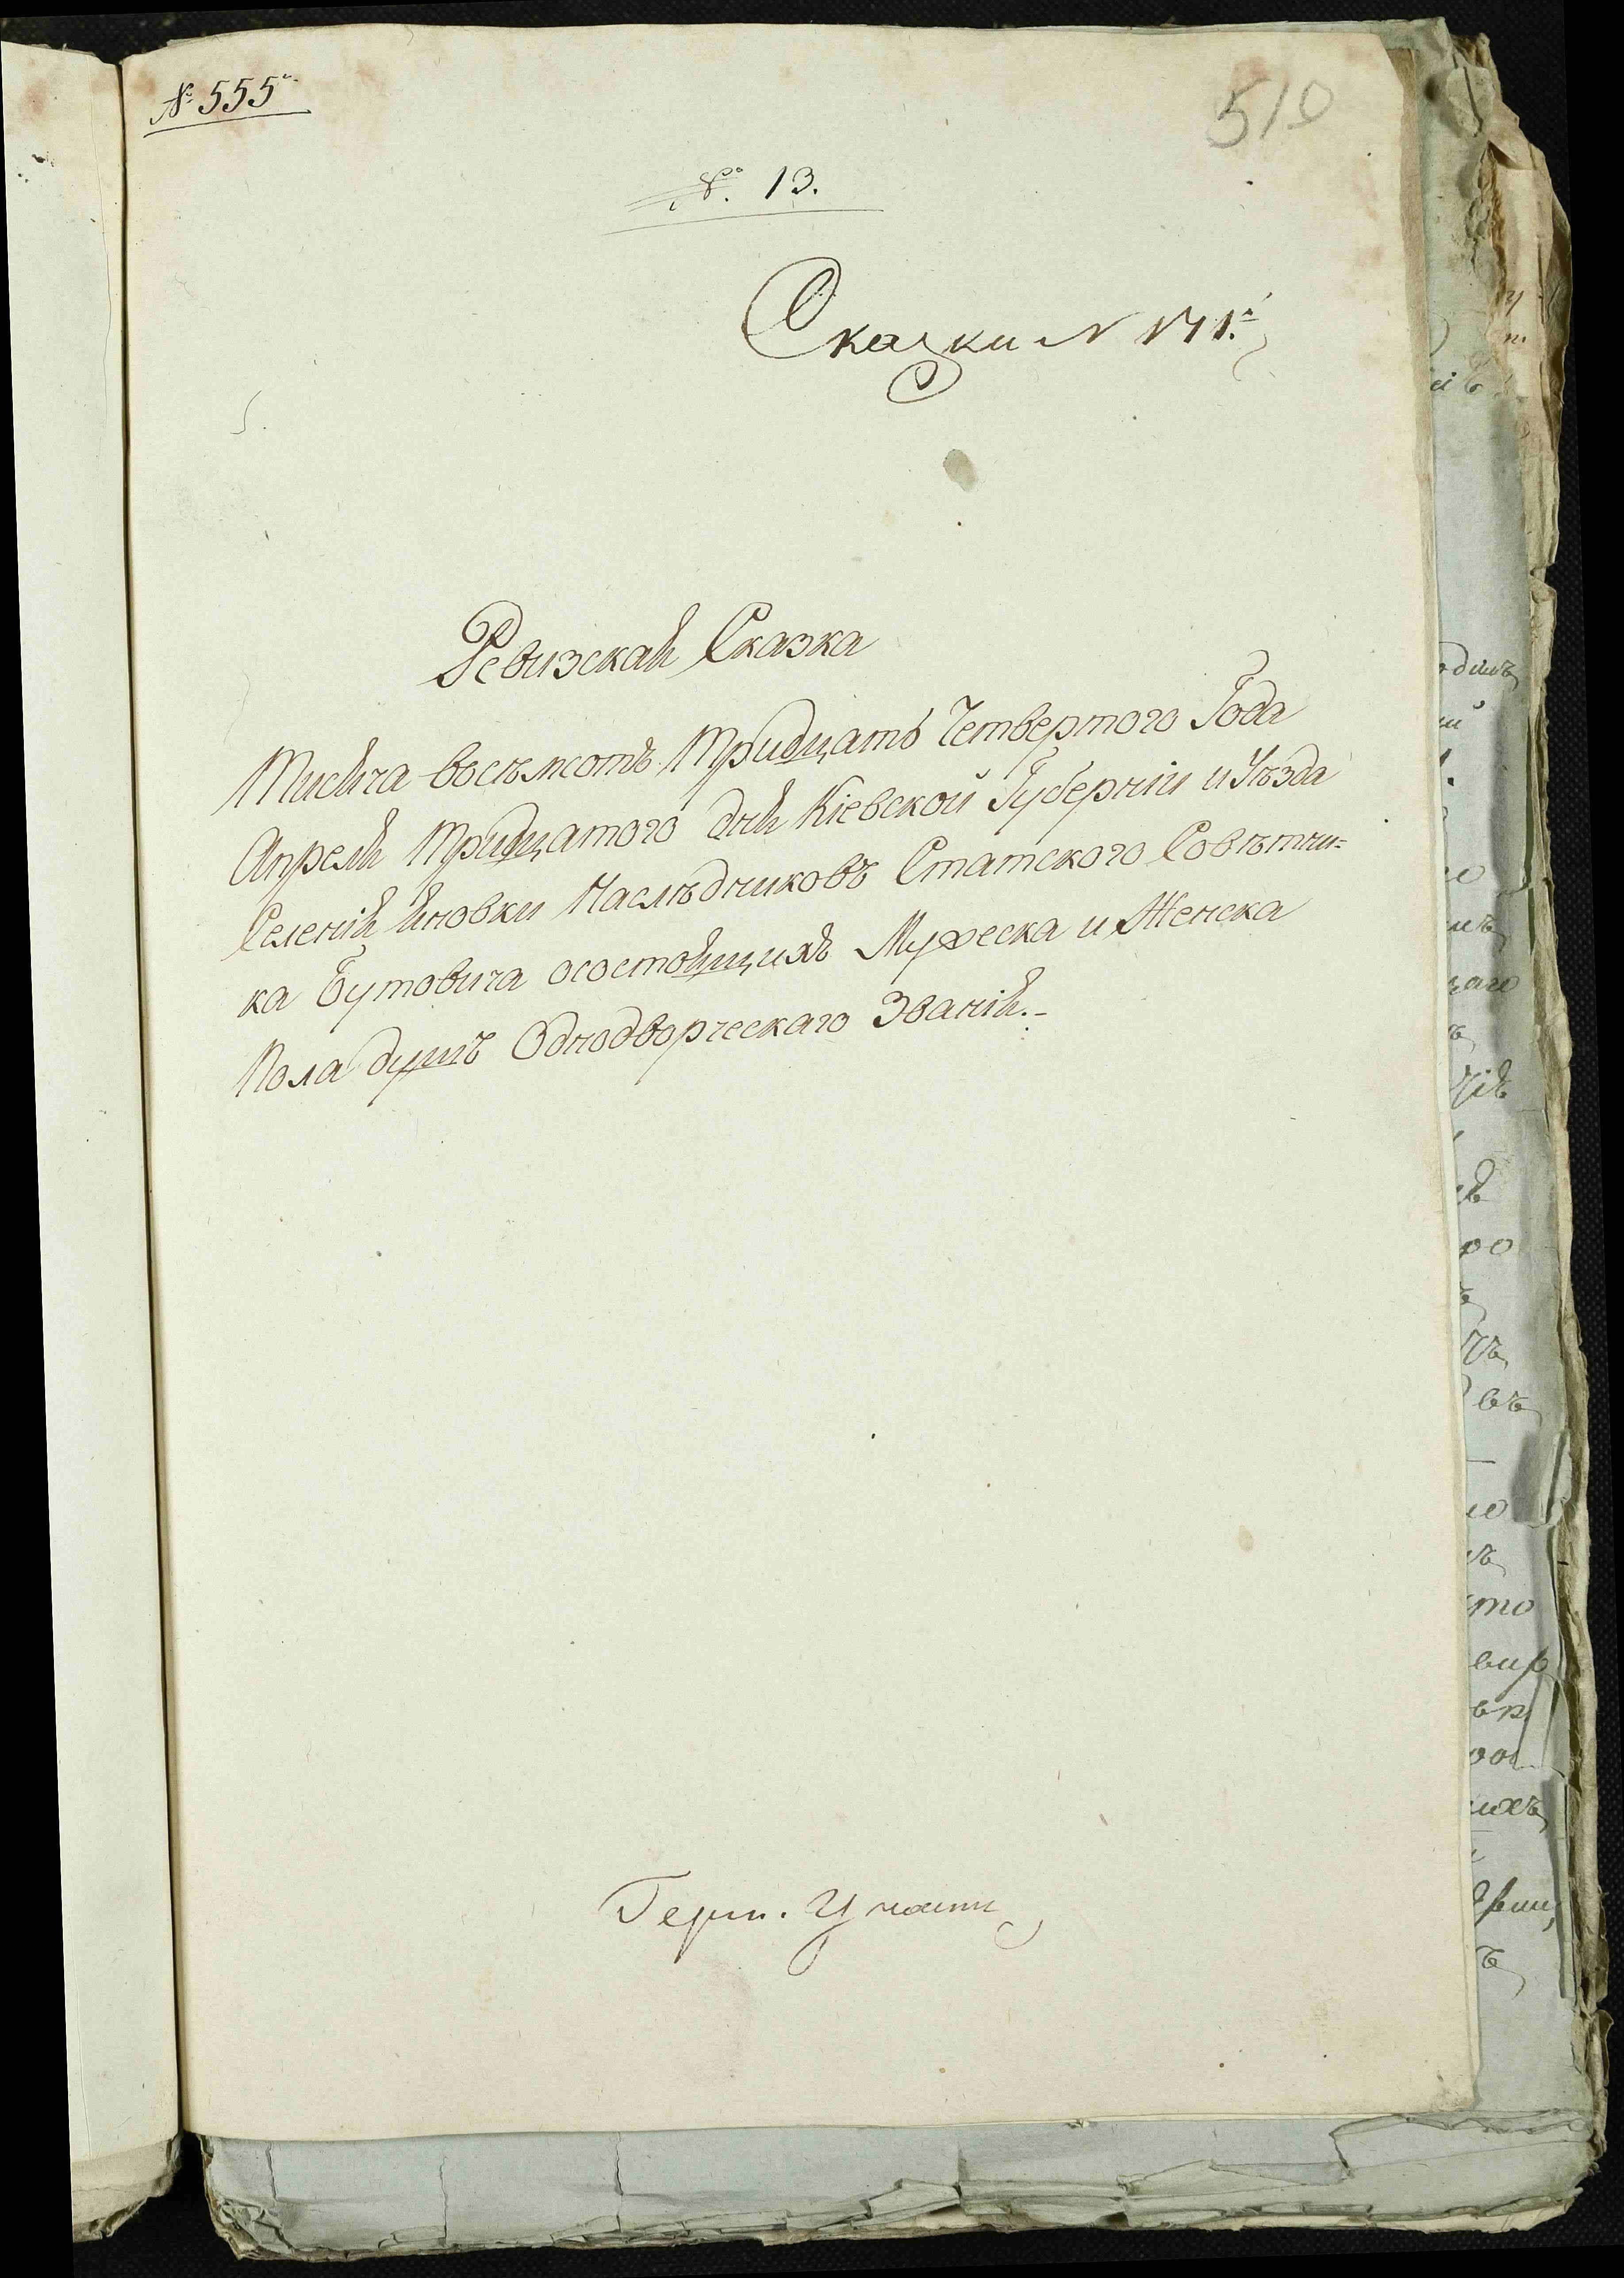 № 555
510
№ 13.
Сказки №171.
Ревизская Сказка
Тисяча восъмсотъ Тридцать Четвертого Года
Апреля Тридцатого дня Кіевской Губерніи и Уѣзда
Селенія Яновки Наслѣдниковъ Статского Совѣтни=
ка Бутовича осостоящихъ Мужеска и Женска
Пола душъ Однодворческаго Званія.-